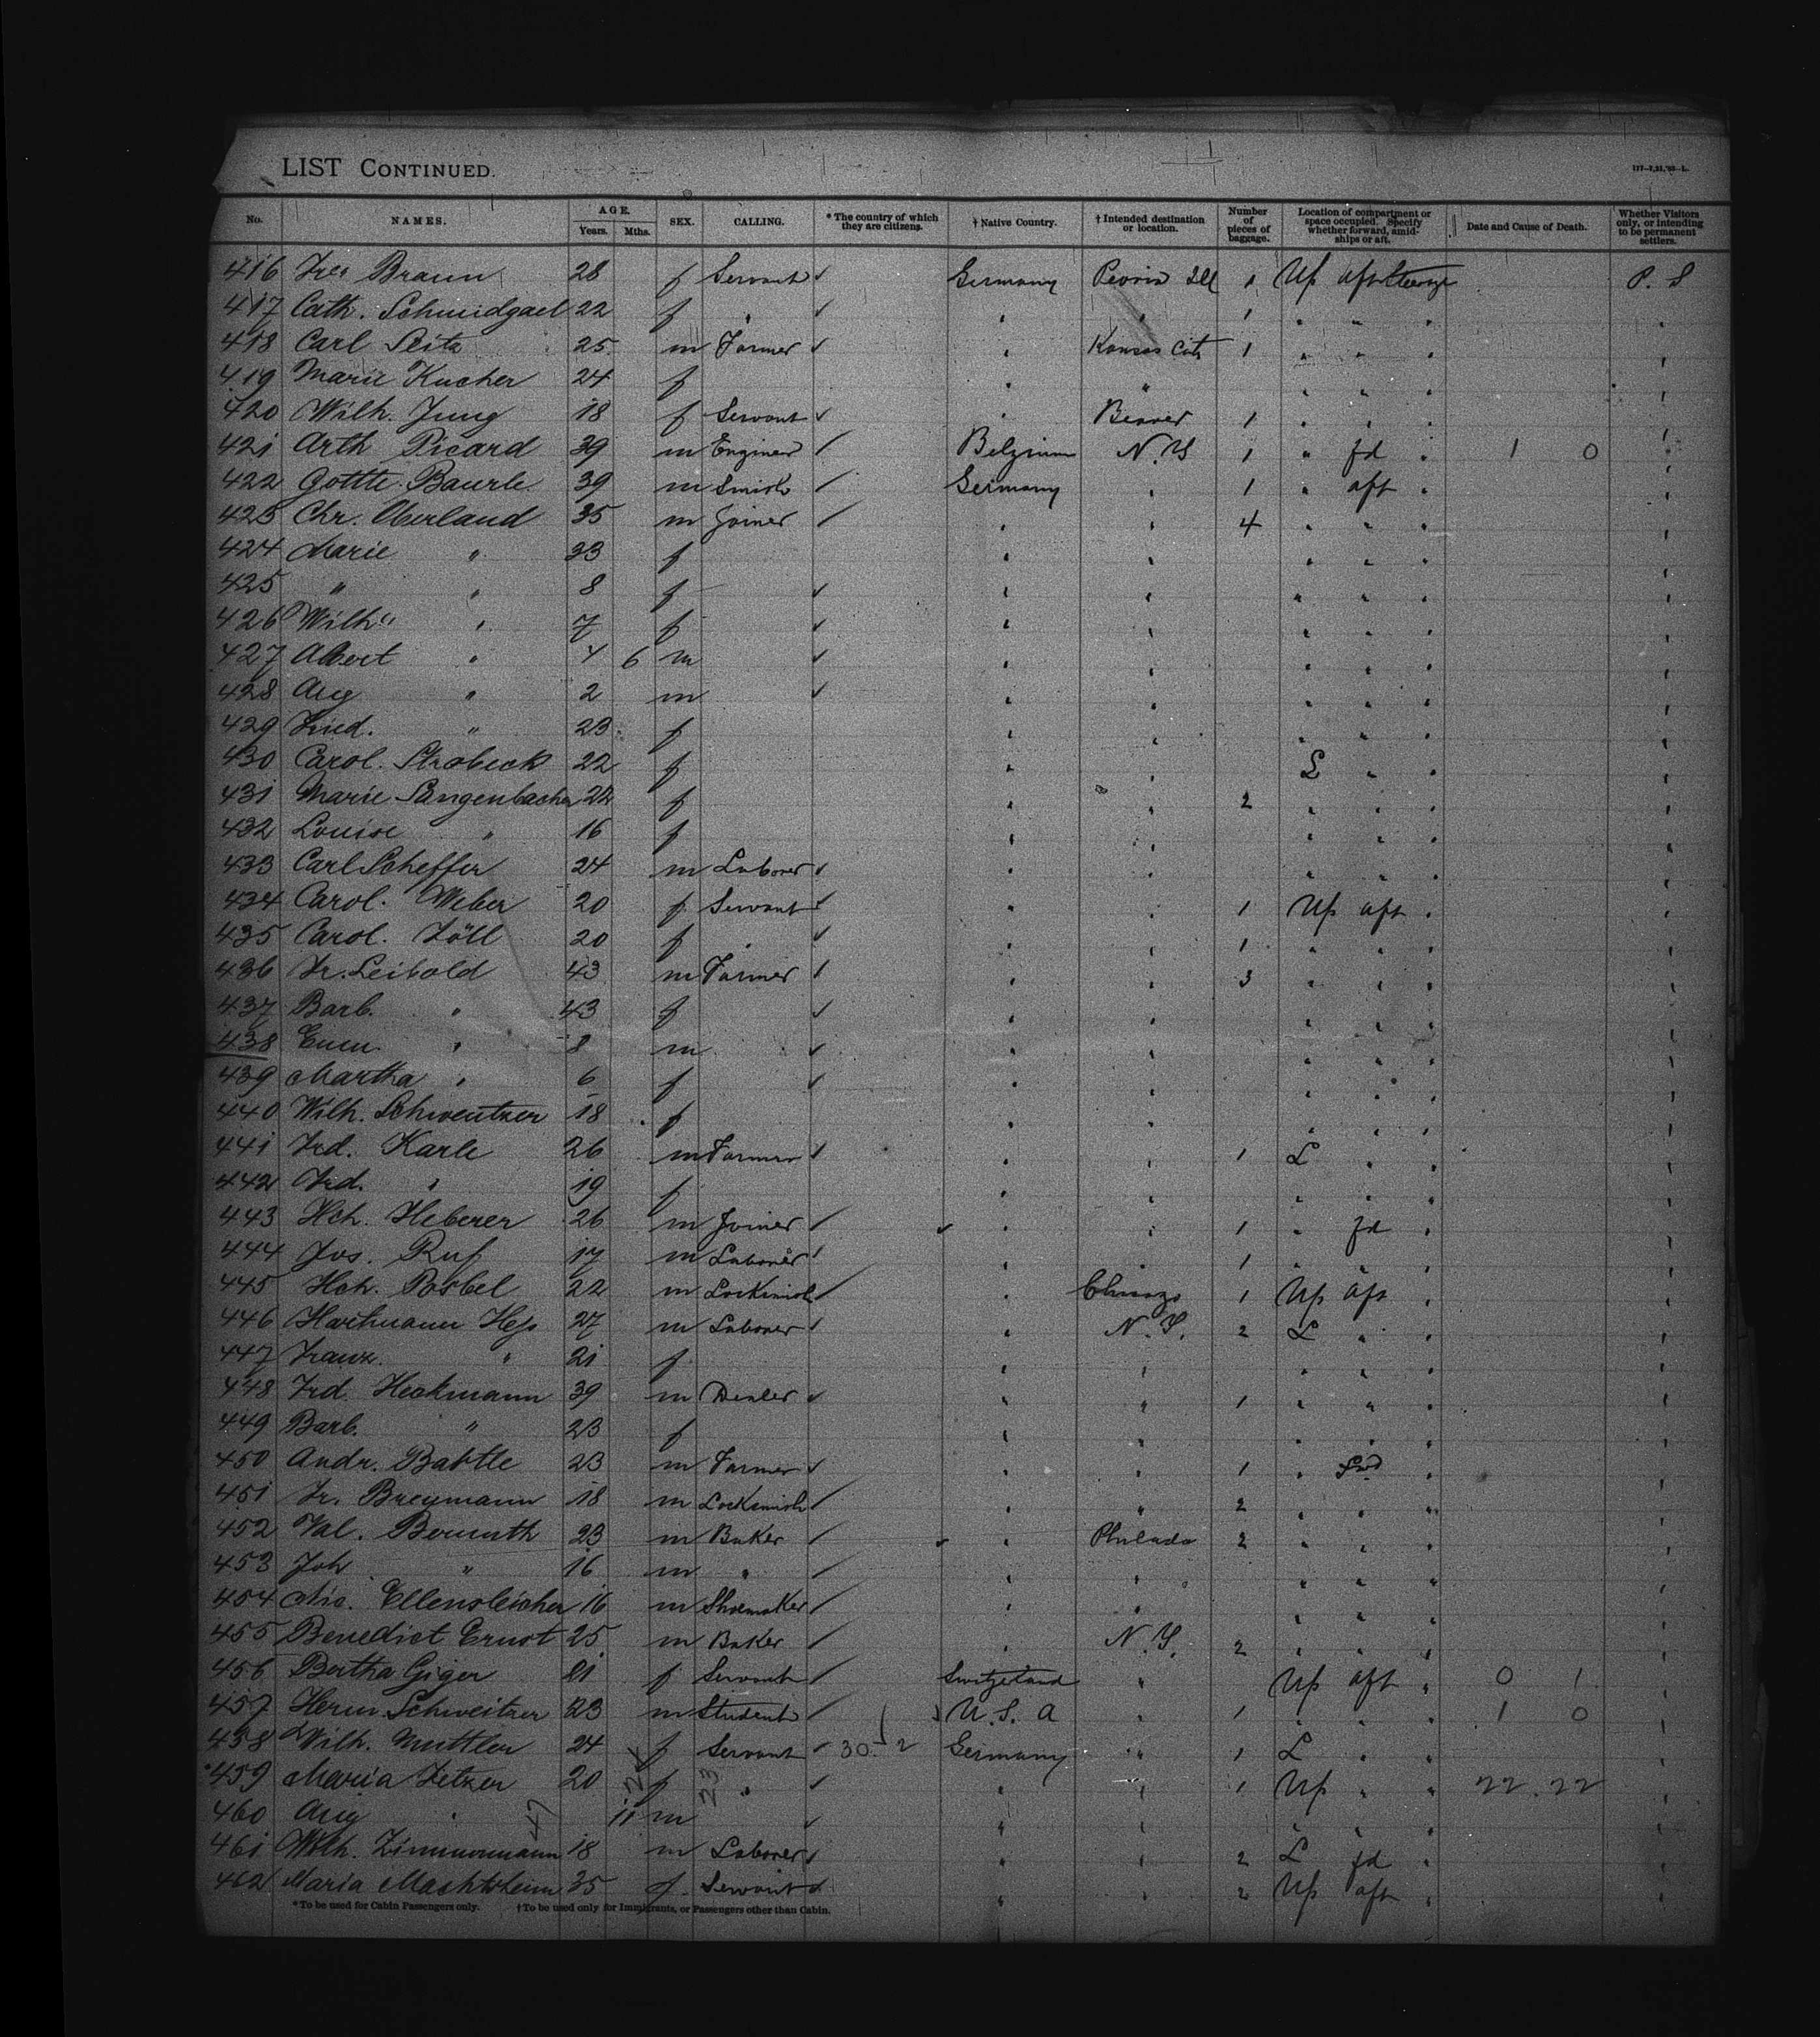 LIST CONTINUED.
No. NAMES. AGE. Years. Mths. SEX. CALLING. * The country of which they are citizens. † Native Country. † Intended destination or location. Number of pieces of baggage. Location of compartment or space occupied. Specify whether forward, amidships or aft. Date and Cause of Death. Whether Visitors only, or intending to be permanent settlers.
416 Braun 28 f Servant ✓ Germany Peoria Ill 1 Up aft Steerage P. S
417 Cath. Schmidgael 22 f " ✓ " " 1 " " " "
418 Carl Seitz 25 m Farmer ✓ " Kansas City 1 " " " "
419 Marie Kucher 24 f " " " " " "
420 Wilh. Jung 18 f Servant ✓ " Beaver 1 " " " "
421 Arth Picard 39 m Engineer / Belgium N. Y 1 " fd " 1 0 "
422 Gottle. Baurle 39 m Smith / Germany " 1 " aft " "
423 Chr. Oberland 35 m Joiner / " " 4 " " " "
424 Marie " 33 f " " " " " "
425 " " 8 f ✓ " " " " " "
426 Wilh" " 7 f ✓ " " " " " "
427 Albert " 4 6 m ✓ " " " " " "
428 Aug " 2 m ✓ " " " " " "
429 Fried. " 23 f " " " " " "
430 Carol. Strobeck 22 f " " L " " "
431 Marie Langenbacher 22 f " " 2 " " " "
432 Louise " 16 f " " " " " "
433 Carl Scheffer 24 m Laborer ✓ " " " " " "
434 Carol. Weber 20 f Servant ✓ " " 1 Up aft " "
435 Carol. Zöll 20 f " ✓ " " 1 " " " "
436 Fr. Leibold 43 m Farmer / " " 3 " " " "
437 Barb. " 43 f ✓ " " " " " "
438 " 8 m ✓ " " " " " "
439 Martha " 6 f ✓ " " " " " "
440 Wilh. Schweutzer 18 f " " " " " "
441 Frd. Karle 26 m Farmer ✓ " " 1 L " " "
442 Frd. " 19 f " " " " " "
443 Hch. Heberer 26 m Joiner / ✓ " " 1 " fd " "
444 Jos. Ruf 17 m Laborer / " " 1 " " " "
445 Hch. 22 m Locksmith / " Chicago 1 Up aft " "
446 Hartmann Hess 27 m Laborer / " N. Y. 2 L " " "
447 Franz. " 21 f " " " " " "
448 Frd. Heckmann 39 m Dealer ✓ " " 1 " " " "
449 Barb. " 23 f " " " " " "
450 Andr. 23 m Farmer ✓ " " 1 " Fwd " "
451 Fr. Breymann 18 m Locksmith / " " 2 " " " "
452 Val. Bermuth 23 m Baker / ✓ " Philada 2 " " " "
453 Joh " 16 m " / " " " " " "
454 Nic. 16 m Shoemaker / " " " " " "
455 Benedict Ernst 25 m Baker / " N. Y. 2 " " " "
456 Bertha Giger 21 f Servant / Switzerland " Up aft " 0 1 "
457 Herm. Schweitzer 23 m Student / U. S. A " 1 " " " 1 0 "
458 Wilh. Muttler 24 f Servant ✓ 30 2 Germany " 1 L " " "
459 Maria Zetzer 20 f 23 " ✓ " " 1 Up " " 22 . 22 "
460 Aug " 11 m ✓ " " " " " "
461 Wilh. Zimmermann 18 m Laborer ✓ " " 2 L fd " "
462 Maria Machtsheim 35 f Servant ✓ " " 2 Up aft " "
* To be used for Cabin Passengers only. † To be used only for Immigrants, or Passengers other than Cabin.